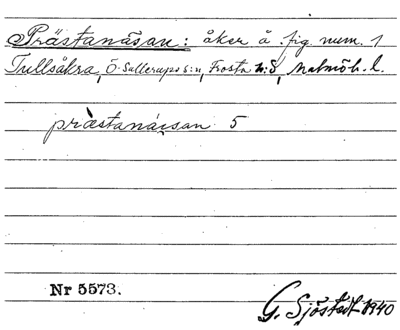 Prästanåsan: åker å fig. num. 1
Tullsåkra, Ö. Sallerups s:n, Frosta h:d, Malmöh. l.
præ̀stanácsan 5
Nr 5573.
G. Sjöstedt 1940